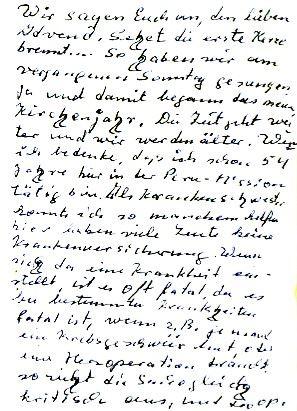 Wir sagen Euch an, den lieben
Advent. Sehet die erste Kerze
brennt... So haben wir am
vergangenen Sonntag gesungen
Ja und damit begann das neue
Kirchenjahr. Die Zeit geht wei
ter und wir werden älter. Wenn
ich bedenke, dass ich schon 54
Jahre hier in der Peru-Mission
tätig bin. Als Krankenschwester
konnte ich so manchem helfen
hier haben viele Leute keine
Krankenversicherung. Wenn
sich da eine Krankheit ein-
stellt, ist es oft fatal, da es
bei bestimmten Krankheiten
fatal ist, wenn z.B. jemand
ein Krebsgeschwür hat oder
eine Herzoperation braucht
so sieht die Sache gleich
kritisch aus, und